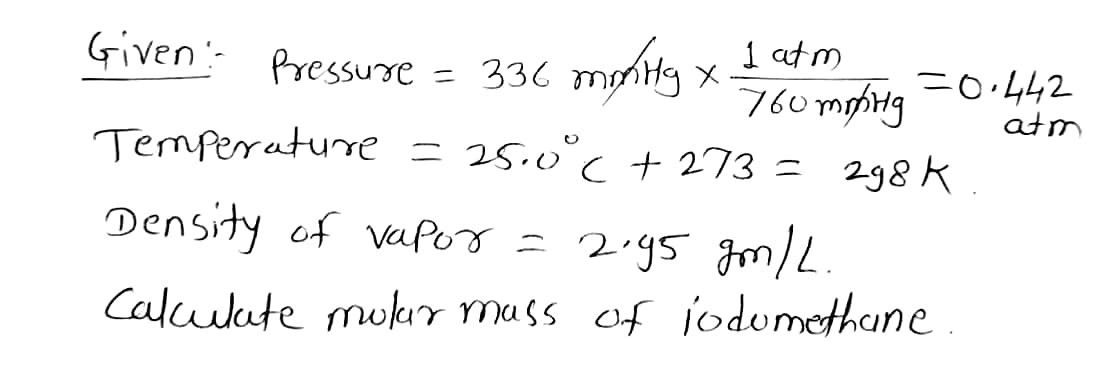 Given:- Pressure = 336 mmHg × 1 atm / 760 mmHg = 0.442 atm
Temperature = 25.0°C + 273 = 298 K.
Density of vapor = 2.95 gm/L.
Calculate molar mass of iodomethane.